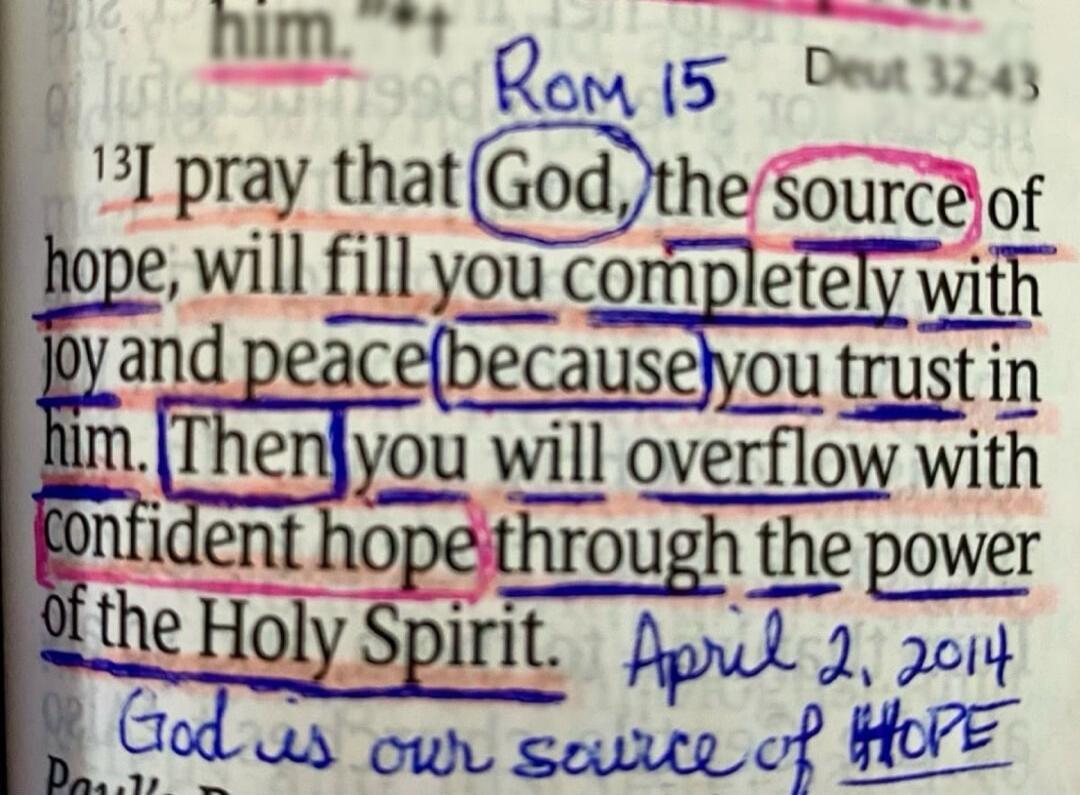 him."*†
Rom 15
Deut 32:43
13I pray that God, the source of
hope, will fill you completely with
joy and peace because you trust in
him. Then you will overflow with
confident hope through the power
of the Holy Spirit.
April 2, 2014
God is our source of HOPE
Paul's